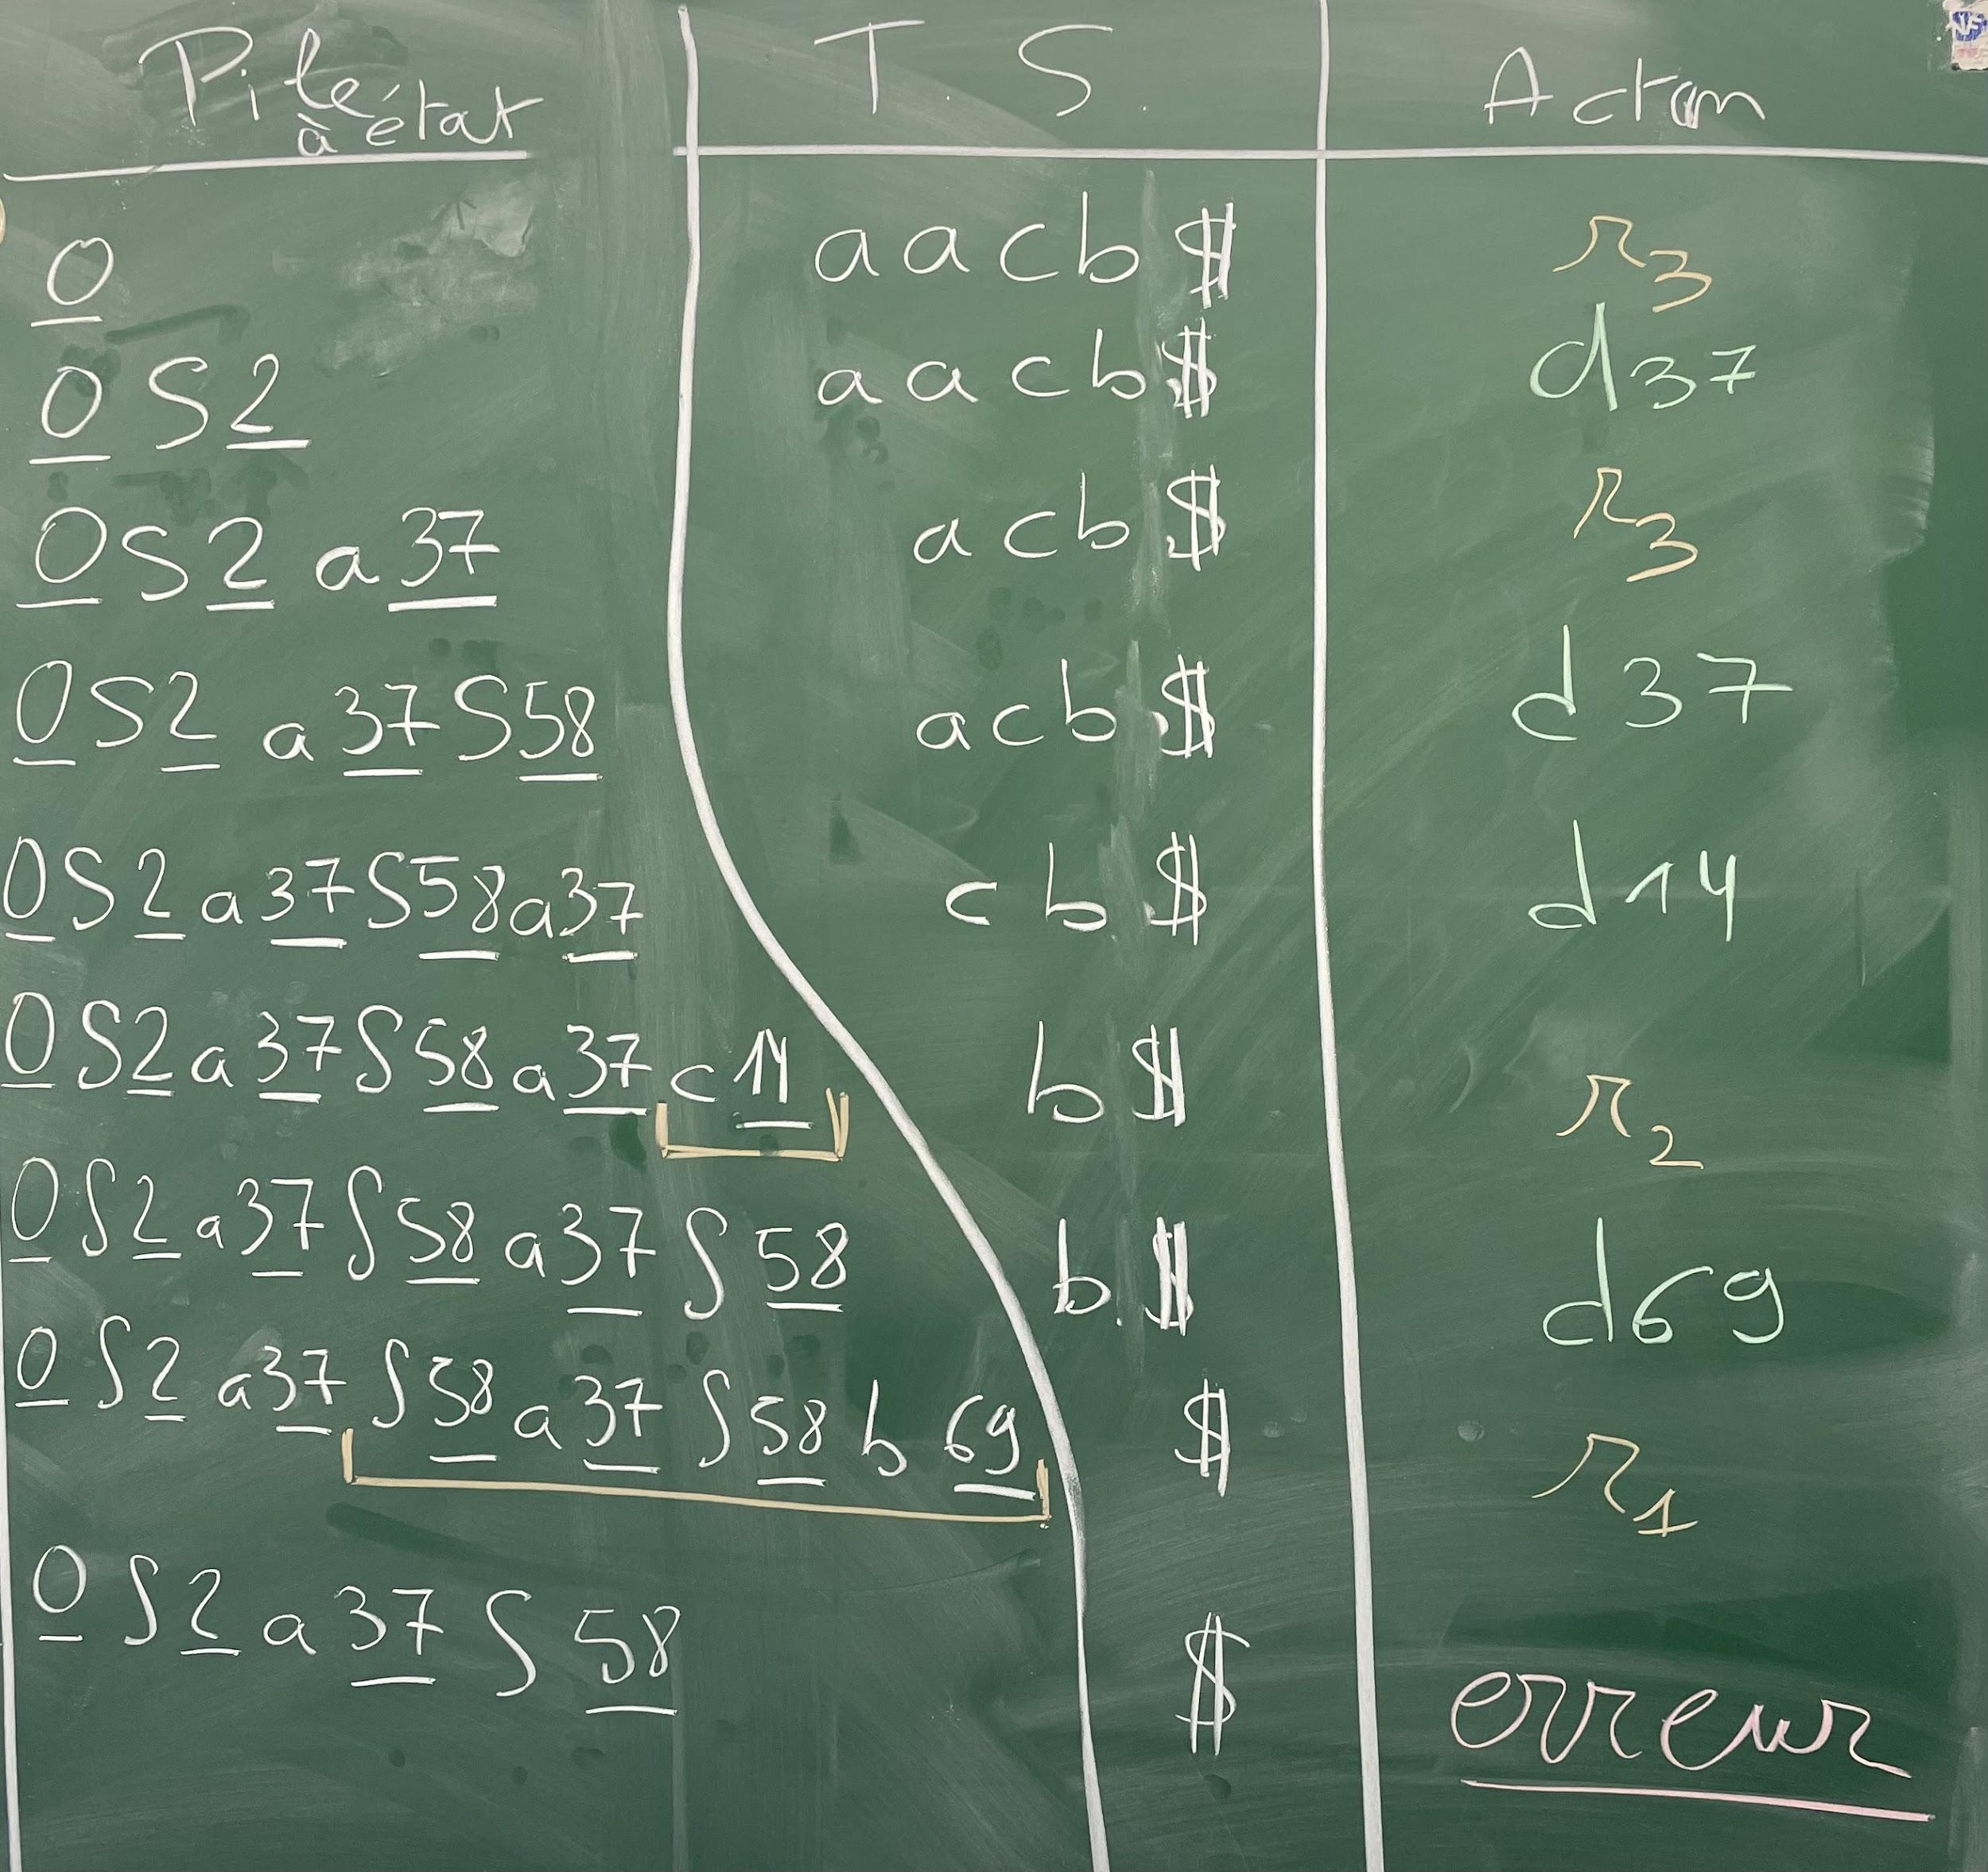 Pile à état T.S. Action
0 aacb$ r3
0S2 aacb$ d37
0S2a37 acb$ r3
0S2a37S58 acb$ d37
0S2a37S58a37 cb$ d14
0S2a37S58a37c14 b$ r2
0S2a37S58a37S58 b$ d69
0S2a37S58a37S58b69 $ r1
0S2a37S58 $ erreur